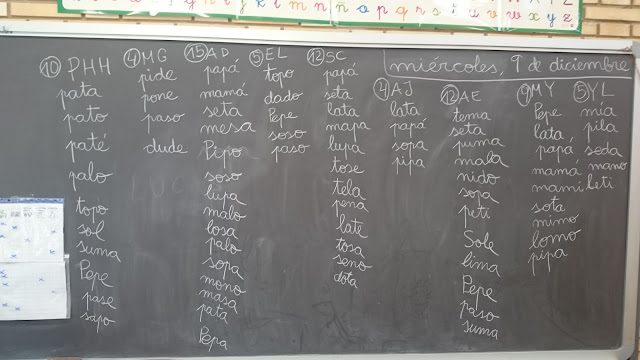 miércoles, 9 de diciembre
10 PHH
pata
pato
paté
palo
topo
sol
suma
Pepe
pase
sapo
4 MG
pide
pone
paso
dude
15 AD
papá
mamá
seta
mesa
Pipo
soso
lupa
malo
losa
palo
sopa
mono
masa
pata
Pepa
5 EL
topo
dado
Pepe
soso
paso
12 SC
papá
seta
lata
mapa
lupa
tose
tela
pena
late
tosa
seno
dota
4 AJ
lata
papá
sopa
pipa
12 AE
tema
seta
puma
mala
nido
sopa
peti
Sole
lima
Pepe
paso
suma
9 MY
Pepe
lata
papá
mamá
mami
sota
mimo
lomo
pipa
5 YL
mía
pila
seda
mano
leti